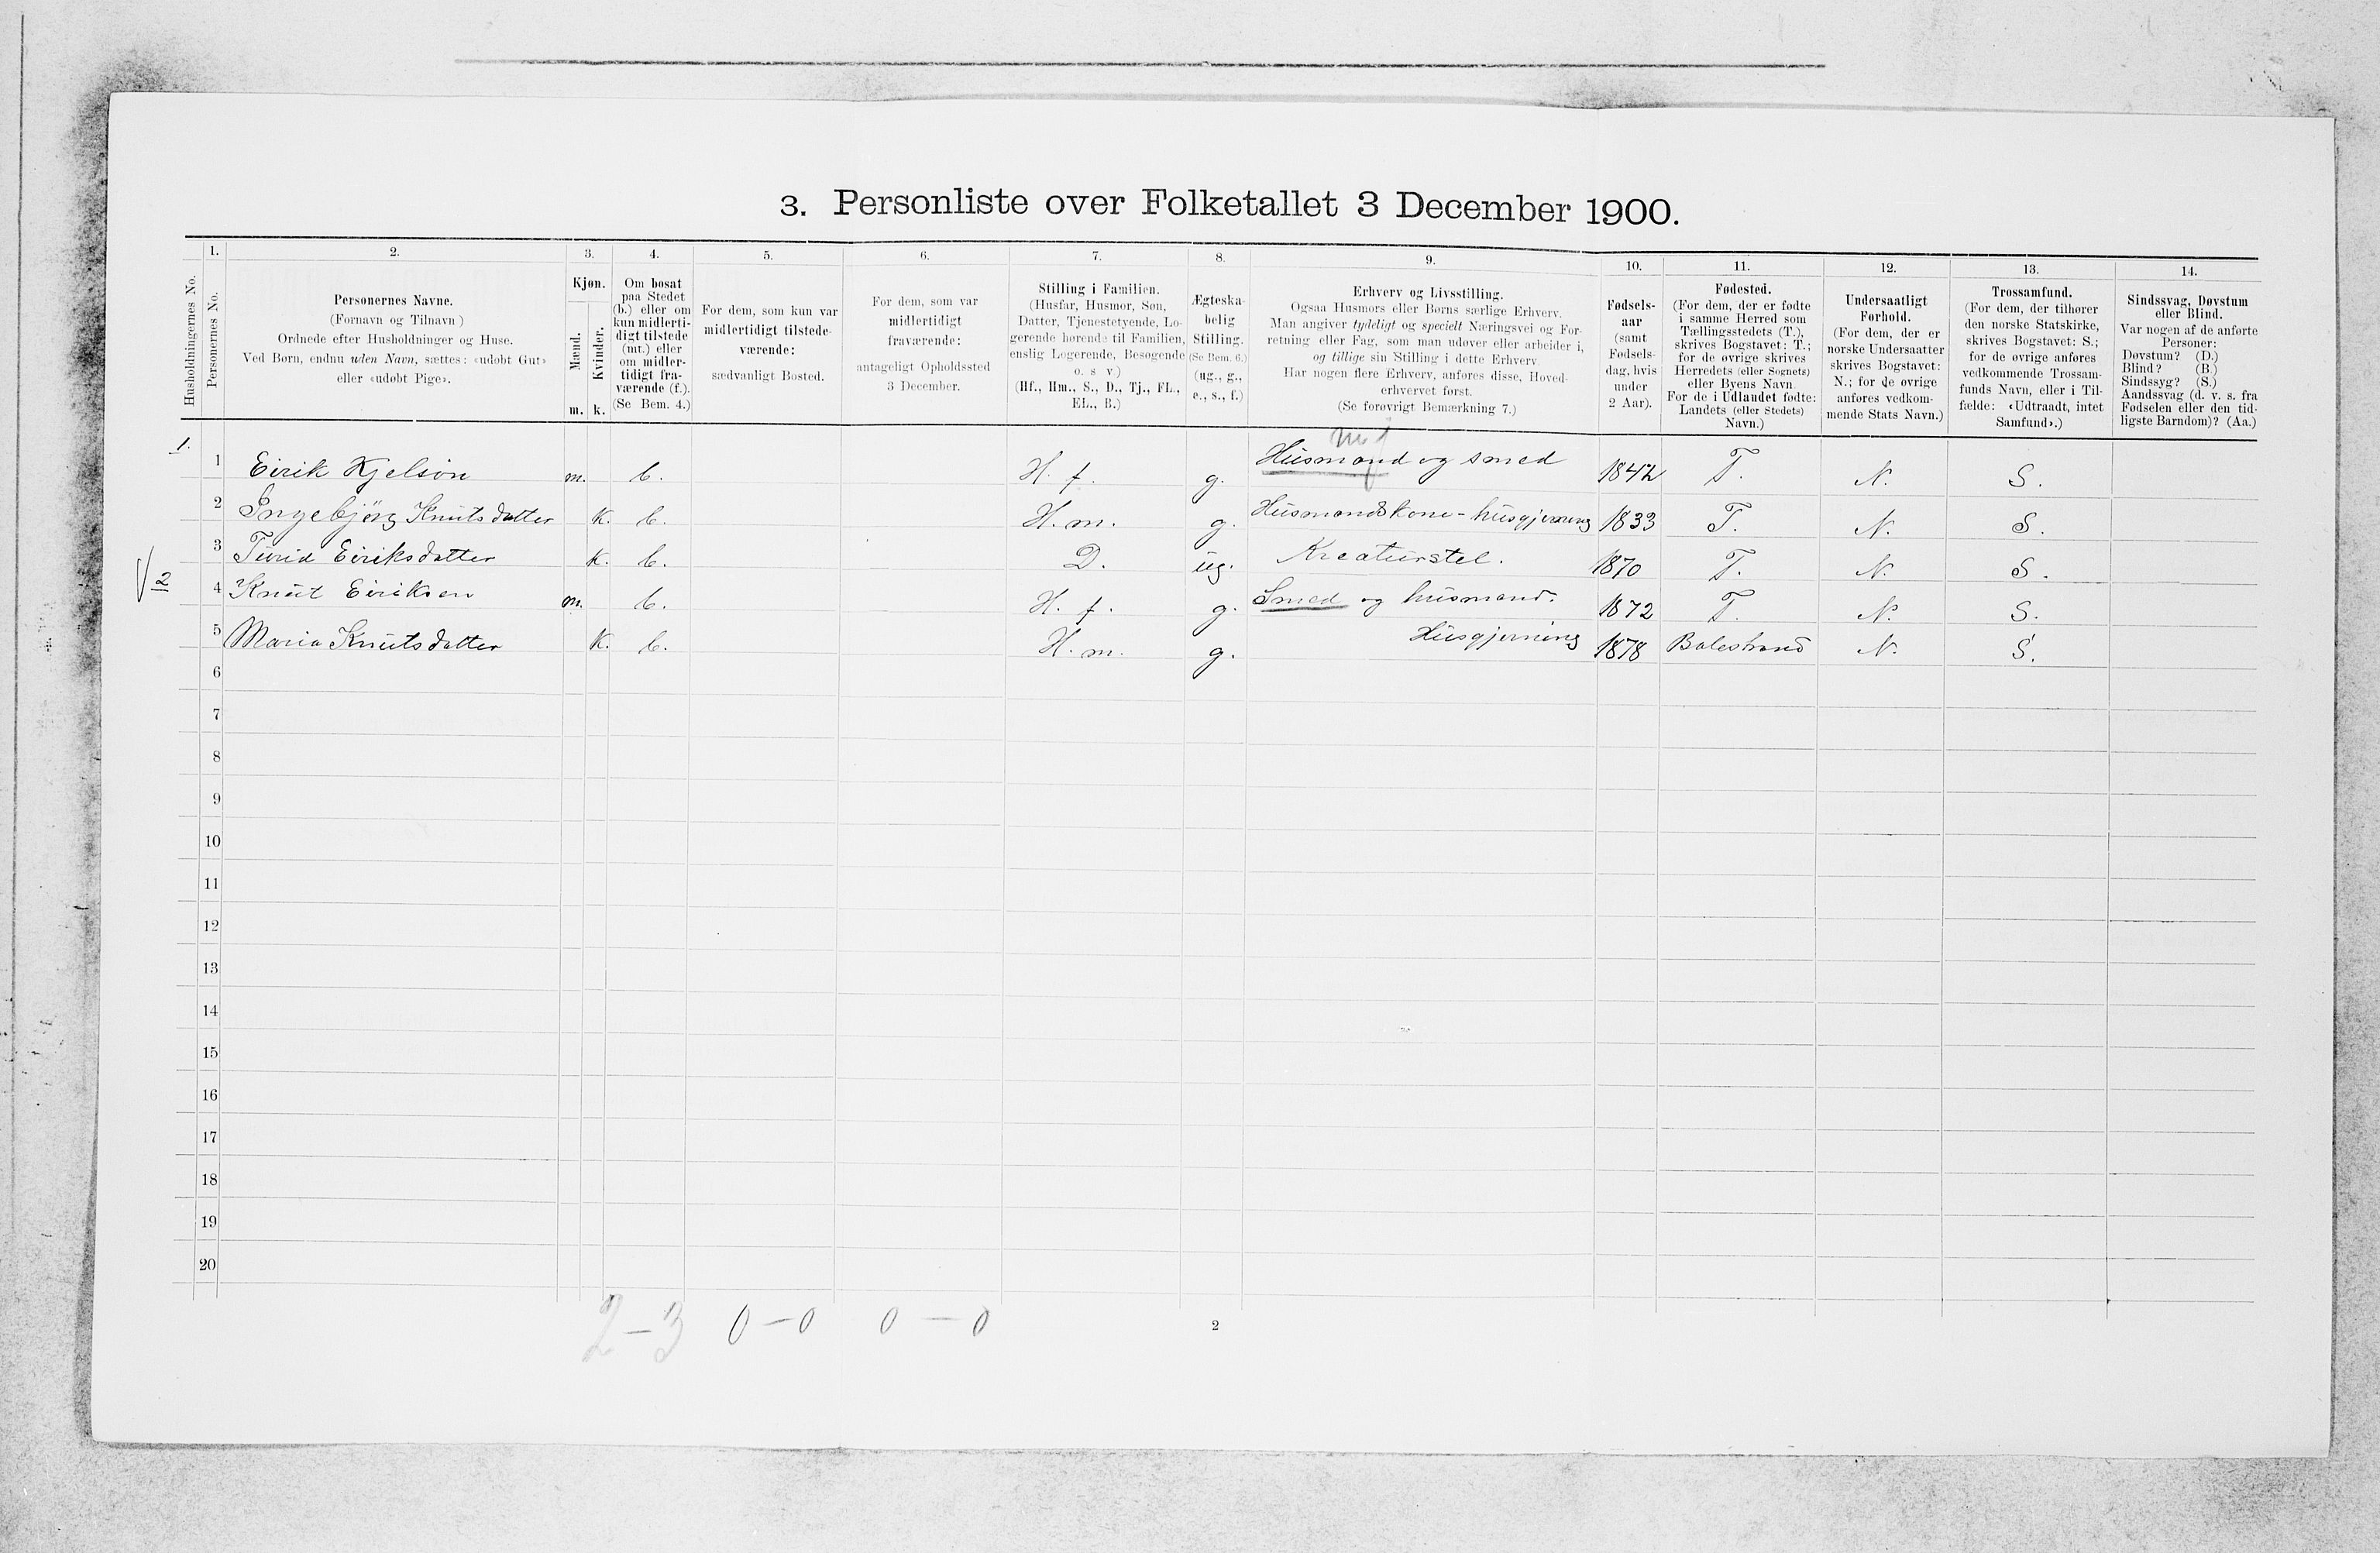 3. Personliste over Folketallet 3 December 1900.
Husholdningernes No.
1.
Personernes No.
2.
Personernes Navne.
(Fornavn og Tilnavn)
Ordnede efter Husholdninger og Huse.
Ved Børn, endnu uden Navn, sættes: «udøbt Gut»
eller «udøbt Pige».
3.
Kjøn.
Mænd.
Kvinder.
m. k.
4.
Om bosat
paa Stedet
(b.) eller om
kun midlerti-
digt tilstede
(mt.) eller
om midler-
tidigt fra-
værende (f.).
(Se Bem. 4.)
5.
For dem, som kun var
midlertidigt tilstede-
værende:
sædvanligt Bosted.
6.
For dem, som var
midlertidigt
fraværende:
antageligt Opholdssted
3 December.
7.
Stilling i Familien.
(Husfar, Husmor, Søn,
Datter, Tjenestetyende, Lo-
gerende hørende til Familien,
enslig Logerende, Besøgende
o. s v)
(Hf., Hm., S., D., Tj., FL.,
EL., B.)
8.
Ægteska-
belig
Stilling.
(Se Bem. 6.)
(ug., g.,
e., s., f.)
9.
Erhverv og Livsstilling.
Ogsaa Husmors eller Børns særlige Erhverv.
Man angiver tydeligt og specielt Næringsvei og For-
retning eller Fag, som man udøver eller arbeider i,
og tillige sin Stilling i dette Erhverv
Har nogen flere Erhverv, anføres disse, Hoved-
erhvervet først.
(Se forøvrigt Bemærkning 7.)
10.
Fødsels-
aar
(samt
Fødsels-
dag, hvis
under
2 Aar).
11.
Fødested.
(For dem, der er fødte
i samme Herred som
Tællingsstedets (T.),
skrives Bogstavet: T.;
for de øvrige skrives
Herredets (eller Sognets)
eller Byens Navn
For de i Udlandet fødte:
Landets (eller Stedets)
Navn.)
12.
Undersaatligt
Forhold.
(For dem, der er
norske Undersaatter
skrives Bogstavet:
N.; for de øvrige
anføres vedkom-
mende Stats Navn.)
13.
Trossamfund.
(For dem, der tilhører
den norske Statskirke,
skrives Bogstavet: S.;
for de øvrige anføres
vedkommende Trossam-
funds Navn, eller i Til-
fælde: «Udtraadt, intet
Samfund».)
14.
Sindssvag, Døvstum
eller Blind.
Var nogen af de anførte
Personer:
Døvstum? (D.)
Blind? (B.)
Sindssyg? (S.)
Aandssvag (d. v. s. fra
Fødselen eller den tid-
ligste Barndom)? (Aa.)
1. 1 Eirik Kjelson m. b. H. f. g. Husmand og smed 1842 T. N. S.
2 Ingebjørg Knutsdatter k. b. H. m. g. Husmandskone - husgjerning 1833 T. N. S.
3 Turid Eiriksdatter k. b. D. ug. Kreaturstel. 1870 T. N. S.
2 4 Knut Eiriksen m. b. H. f. g. Smed og husmand. 1872 T. N. S.
5 Maria Knutsdatter k. b. H. m. g. Husgjerning 1878 Balestrand N. S.
6
7
8
9
10
11
12
13
14
15
16
17
18
19
20
2-3 0-0 0-0
2